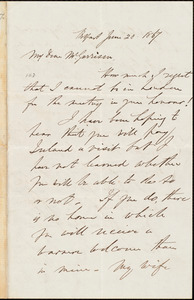 June 21 1867
My Dear Mr Garrison
How much I regret
that I cannot be in London
for the meeting in your honour!
I have been hoping to
hear that you will pay
Ireland a visit but I
have not learned whether
you will be able to do so
or not. If you do there
is no home in which
you will receive a
warmer welcome than
in mine. My wife